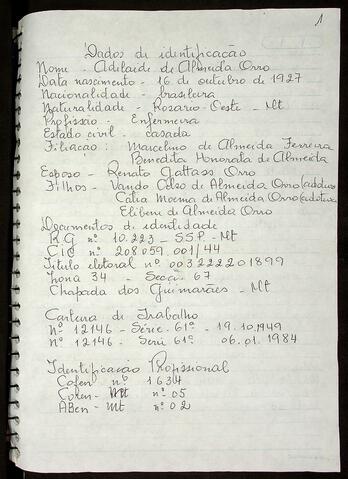 1
Dados de identificação
Nome - Adelaide de Almeida Orro
Data nascimento - 16 de outubro de 1927
Nacionalidade - brasileira
Naturalidade - Rosário-Oeste - Mt
Profissão - Enfermeira
Estado civil - casada
Filiação: Marcelino de Almeida Ferreira
Benedita Honorata de Almeida
Esposo - Renato Gattass Orro
Filhos - Vando Celso de Almeida Orro (adotivo
Cátia Moema de Almeida Orro (adotiva
Elibene de Almeida Orro
Documentos de identidade
R.G nº 10.223 - S.S.P. - Mt
CIC nº 208059.001/44
Titulo eleitoral nº 003222201899
Zona 34 - Secção 67
Chapada dos Guimarães - Mt
Carteira de Trabalho
Nº 12146 - Série 61ª - 19.10.1949
Nº 12146 - Serii 61ª 06.01.1984
Identificação Profissional
Cofen nº 1634
Coren - Mt nº 05
ABen - Mt nº 02